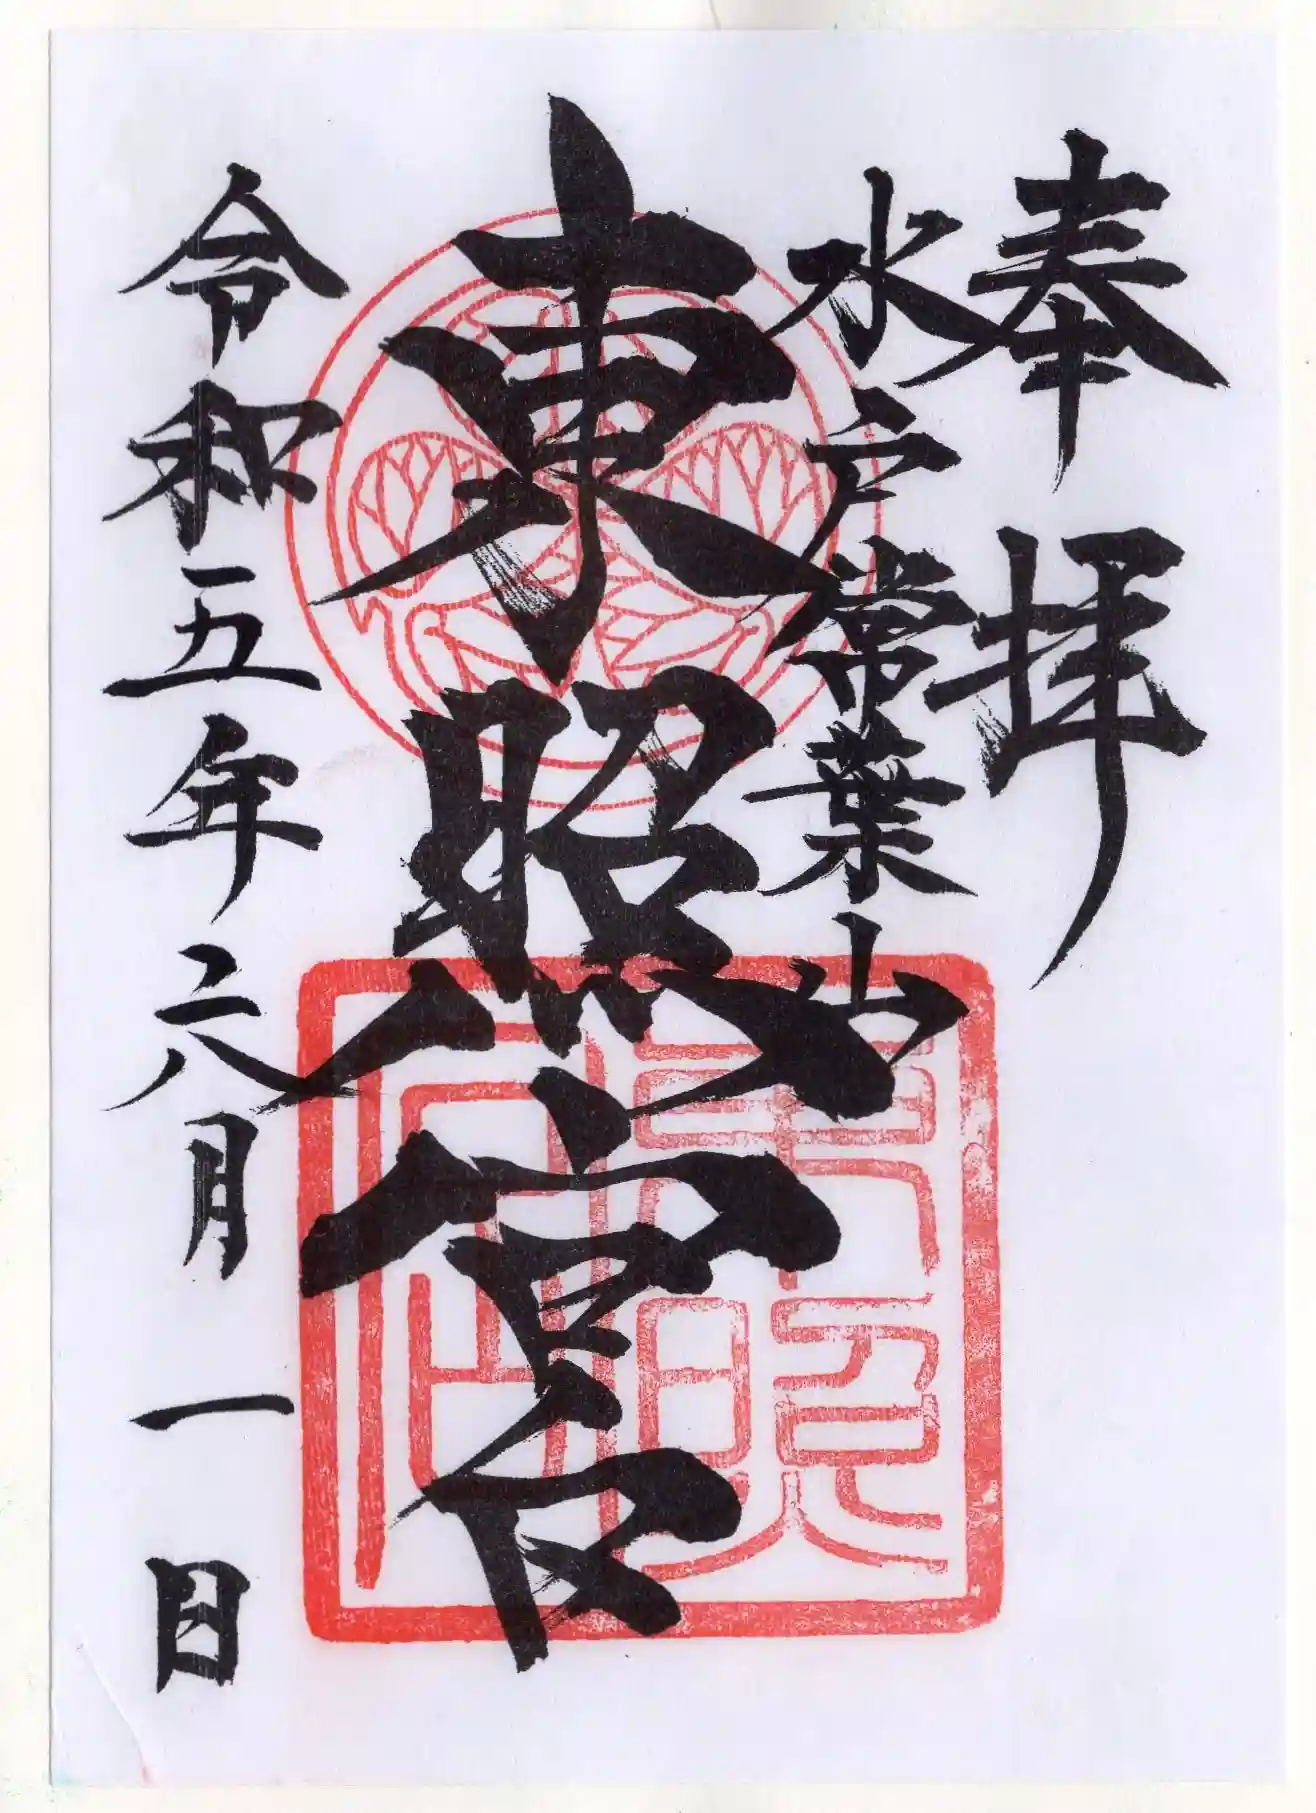 奉拝
水戸常葉山
東照宮
令和五年六月一日
東照
宮